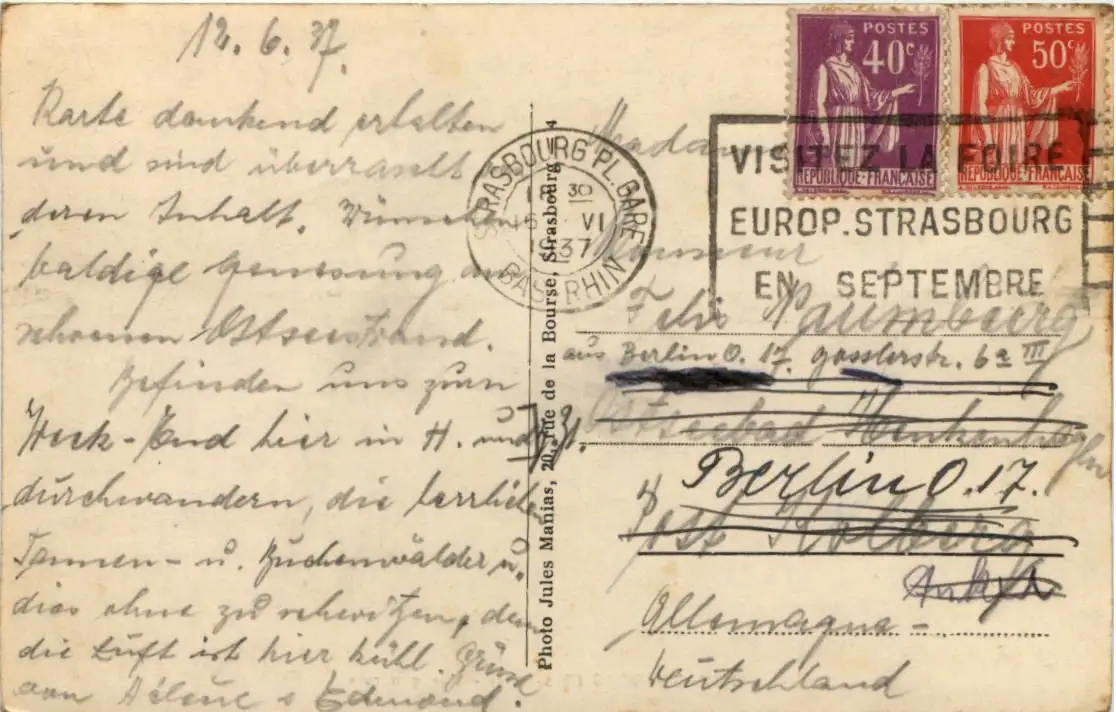 12.6.37.
Karte dankend erhalten
und sind überrascht
deren Inhalt. Wünschen
baldige Genesung am
schoenen Ostseestrand.
Befinden uns zum
Week-End hier in H. und
durchwandern, die herrlichen
Tannen- u. Buchenwälder u.
dies ohne zu schwitzen, denn
die Luft ist hier kühl. Grüsse
von Hélène & Edmond.
Photo Jules Manias, 20, rue de la Bourse, Strasbourg 4
STRASBOURG PL. GARE
30
VI
1937
BAS RHIN
POSTES
40c
REPUBLIQUE FRANÇAISE
POSTES
50c
REPUBLIQUE FRANÇAISE
VISITEZ LA FOIRE
EUROP. STRASBOURG
EN SEPTEMBRE
Madame
Monsieur
Felix Naumburg
aus Berlin O. 17. gosslerstr. 6a III
Ostseebad Henkenhagen
Berlin O. 17.
Post Kolberg
Allemagne -
Deutschland